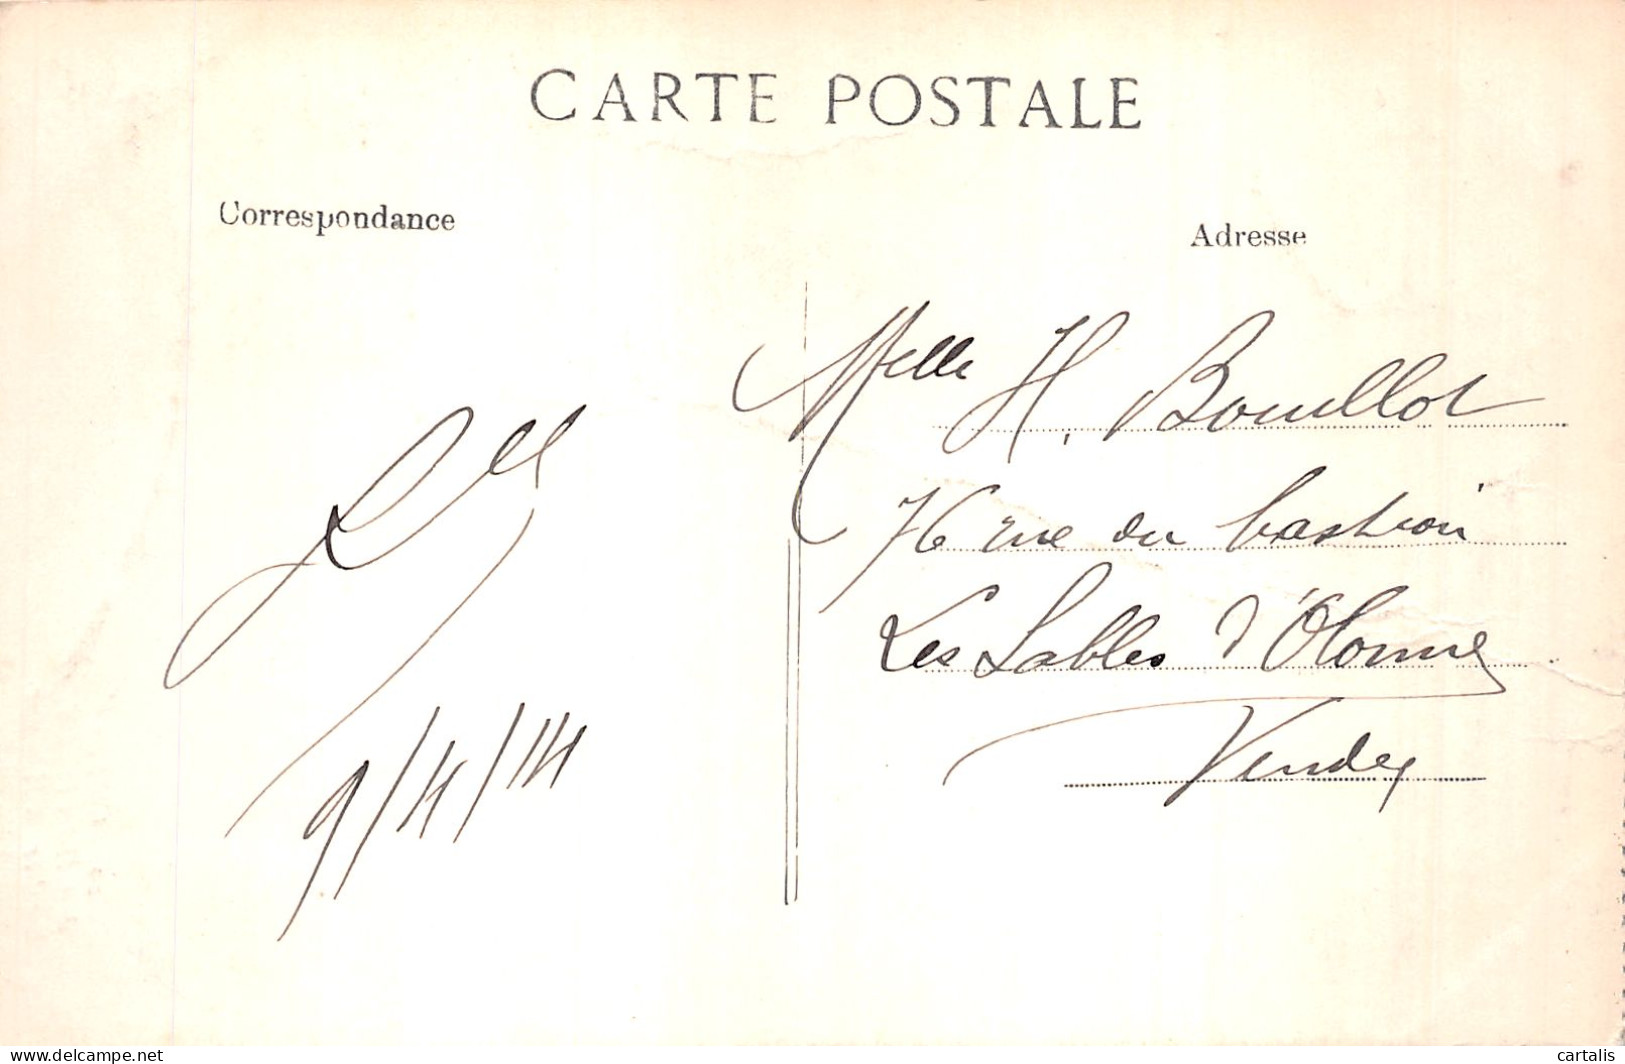 CARTE POSTALE
Correspondance
Adresse
Melle H. Bouillot
76 rue du bastion
Les Sables d'Olonne
Vendée
9/4/14
delcampe.net
cartalis